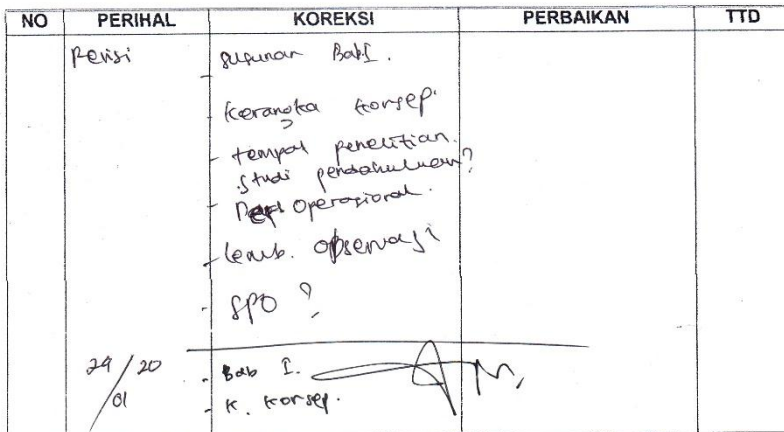 NO PERIHAL KOREKSI PERBAIKAN TTD
Revisi - susunan Bab I.
- Kerangka Konsep.
- tempat penelitian.
studi pendahuluan?
- Operasional.
- lemb. observasi
- SPO ?
29/01 20 - Bab I.
- K. Konsep.